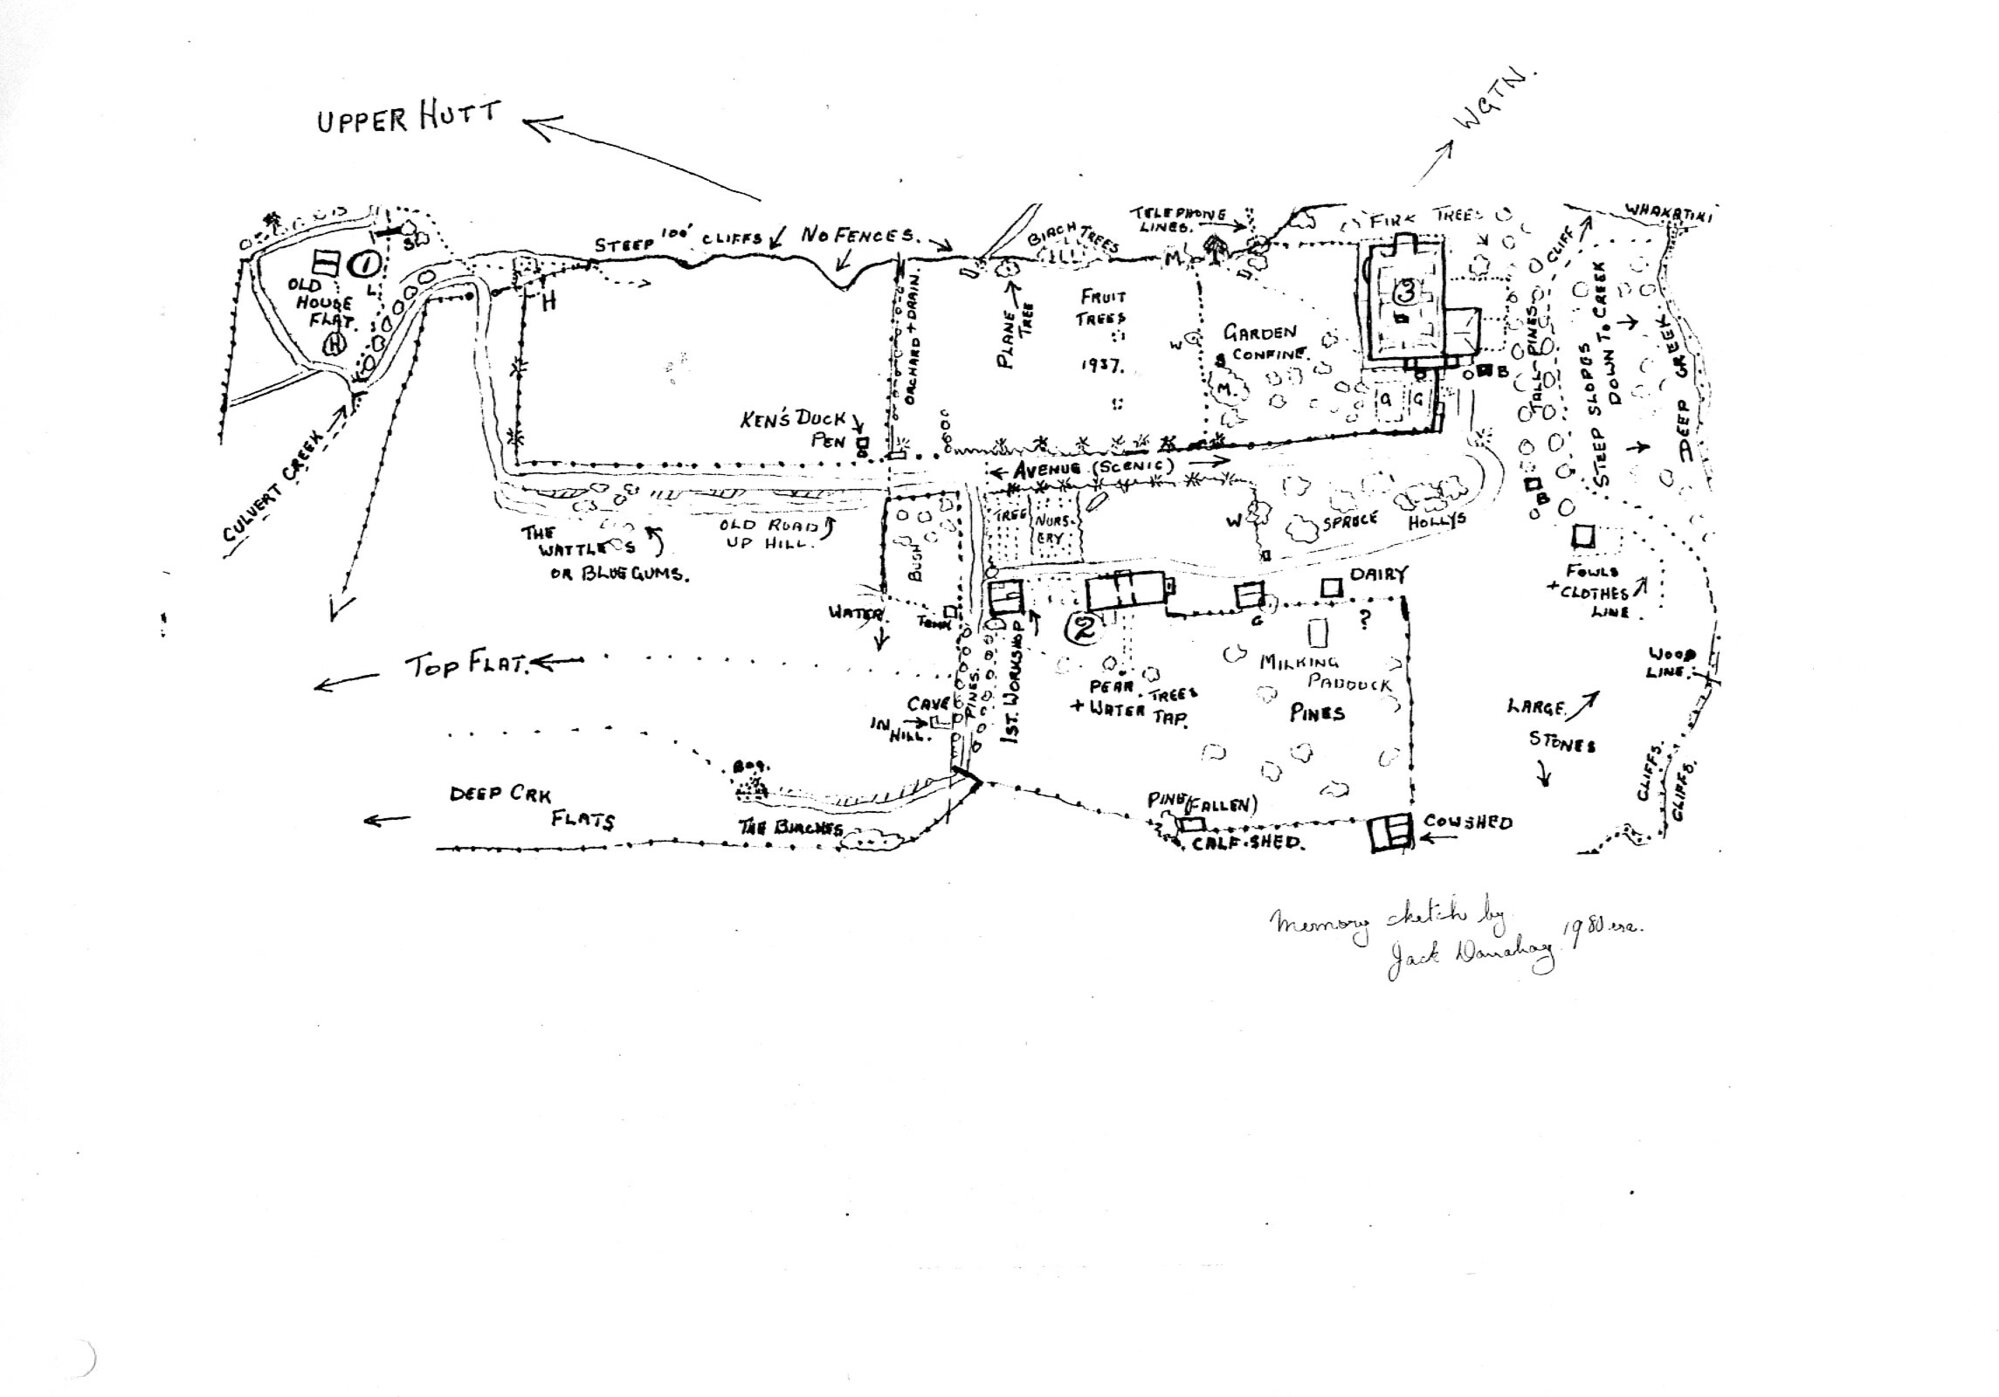 UPPER HUTT
WGTN.
WHAKATIKI
TELEPHONE
LINES.
FIRR TREES
STEEP 100' CLIFFS
NO FENCES.
BIRCH TREES
M
D
D
S
1
OLD
HOUSE
FLAT.
L
H
H
ORCHARD + DRAIN.
PLANE
TREE
FRUIT
TREES
1937.
W
GARDEN
CONFINE.
S
M
3
G
B
TALL PINES
CLIFF
STEEP SLOPES
DOWN TO CREEK
DEEP CREEK
KEN'S DUCK
PEN
AVENUE (SCENIC)
CULVERT CREEK
THE
WATTLES
OR BLUE GUMS.
OLD ROAD
UP HILL.
BUSH
TREE
NURS-
ERY
W
SPRUCE
HOLLYS
B
FOWLS
+ CLOTHES
LINE.
DAIRY
?
G
WATER
TANK
2
1ST. WORKSHOP
TOP FLAT.
CAVE
IN
HILL.
PINES.
PEAR TREES
+ WATER TAP.
MILKING
PADDOCK
PINES
WOOD
LINE.
LARGE
STONES
CLIFFS.
CLIFFS.
BOG.
DEEP CRK
FLATS
THE BIRCHES
PINE (FALLEN)
CALF-SHED.
COWSHED
Memory sketch by
Jack Danahay